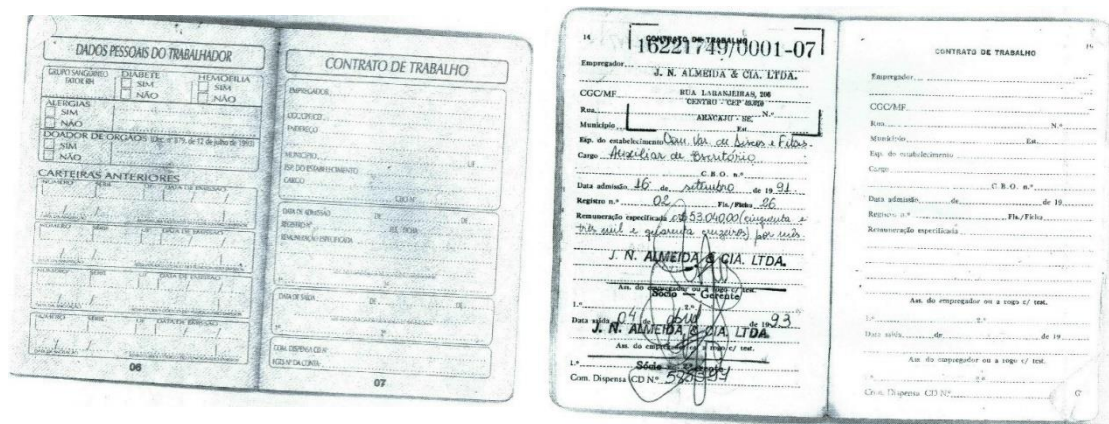 DADOS PESSOAIS DO TRABALHADOR
GRUPO SANGÜÍNEO
FATOR RH
DIABETE
SIM
NÃO
HEMOFILIA
SIM
NÃO
ALERGIAS
SIM
NÃO
DOADOR DE ÓRGÃOS (Dec. nº 879, de 12 de julho de 1993)
SIM
NÃO
CARTEIRAS ANTERIORES
NÚMERO SÉRIE UF DATA DE EMISSÃO
NÚMERO SÉRIE UF DATA DE EMISSÃO
NÚMERO SÉRIE UF DATA DE EMISSÃO
NÚMERO SÉRIE UF DATA DE EMISSÃO
06
CONTRATO DE TRABALHO
EMPREGADOR
CGC/CPF/CEI
ENDEREÇO
MUNICÍPIO UF
ESP. DO ESTABELECIMENTO
CARGO
CBO Nº
DATA DE ADMISSÃO DE DE
REGISTRO Nº FLS./FICHA
REMUNERAÇÃO ESPECIFICADA
1º 2º
DATA DE SAÍDA DE DE
1º 2º
COM. DISPENSA CD Nº
FGTS Nº DA CONTA
07
14 CONTRATO DE TRABALHO
16221749/0001-07
Empregador
J. N. ALMEIDA & CIA. LTDA.
CGC/MF RUA LARANJEIRAS, 206
CENTRO - CEP
Rua N.º
ARACAJU - SE,
Município Est.
Esp. do estabelecimento Com. Var. de Discos e Fitas.
Cargo Auxiliar de Escritório
C.B.O. n.º
Data admissão 16 de setembro de 1991
Registro n.º 02 Fls./Ficha 26
Remuneração especificada Cr$ 53.040,00 (cinquenta e
três mil e quarenta cruzeiros) por mês
J. N. ALMEIDA & CIA. LTDA.
Ass. do empregador ou a rogo c/ test.
Sócio - Gerente
1.º 2.º
Data saída 04 de abril de 1993
J. N. ALMEIDA & CIA. LTDA.
Ass. do empregador ou a rogo c/ test.
1.º Sócio - Gerente
Com. Dispensa CD N.º
CONTRATO DE TRABALHO
Empregador
CGC/MF
Rua N.º
Município Est.
Esp. do estabelecimento
Cargo
C.B.O. n.º
Data admissão de de 19
Registro n.º Fls./Ficha
Remuneração especificada
Ass. do empregador ou a rogo c/ test.
1.º 2.º
Data saída de de 19
Ass. do empregador ou a rogo c/ test.
2.º
Com. Dispensa CD N.º